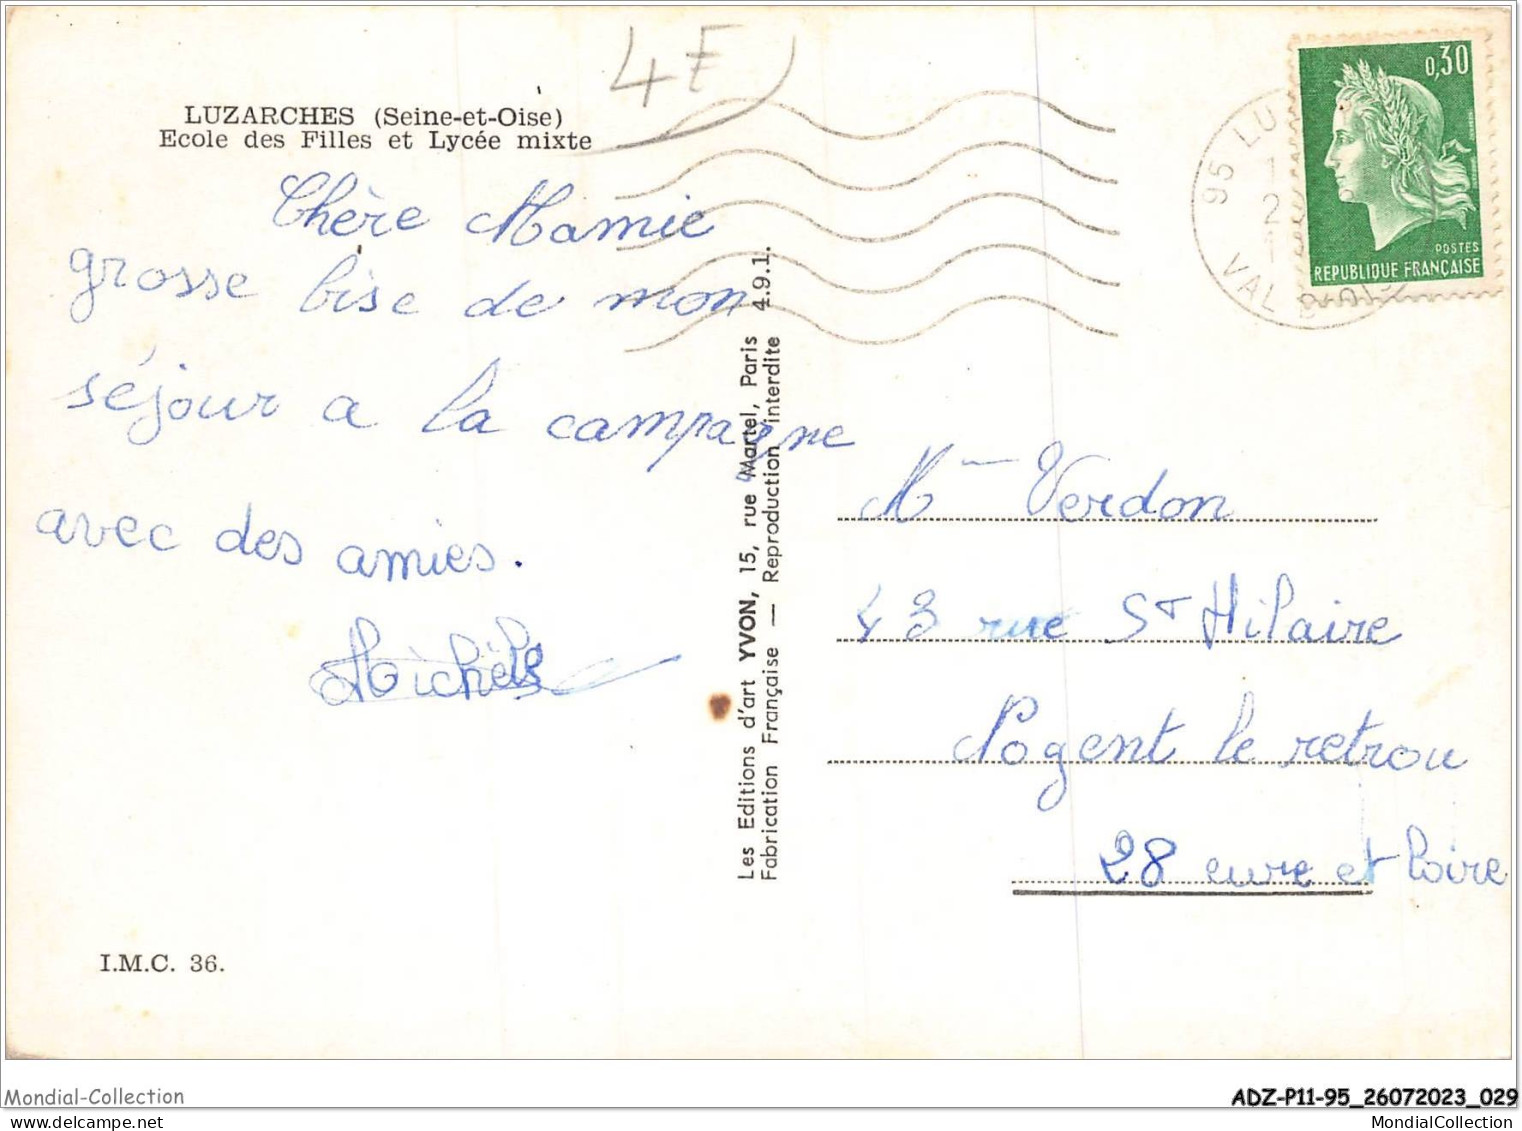 4F
LUZARCHES (Seine-et-Oise)
Ecole des Filles et Lycée mixte
Chère Mamie
grosse bise de mon
séjour a la campagne
avec des amies.
Michèle
I.M.C. 36.
Les Editions d'art YVON, 15, rue Martel, Paris 4.9.1.
Fabrication Française — Reproduction interdite
0,30
POSTES
REPUBLIQUE FRANÇAISE
95 LU
VAL D'OI
Mme Verdon
43 rue St Hilaire
Nogent le retrou
28 eure et Loire
Mondial-Collection
ADZ-P11-95_26072023_029
MondialCollection